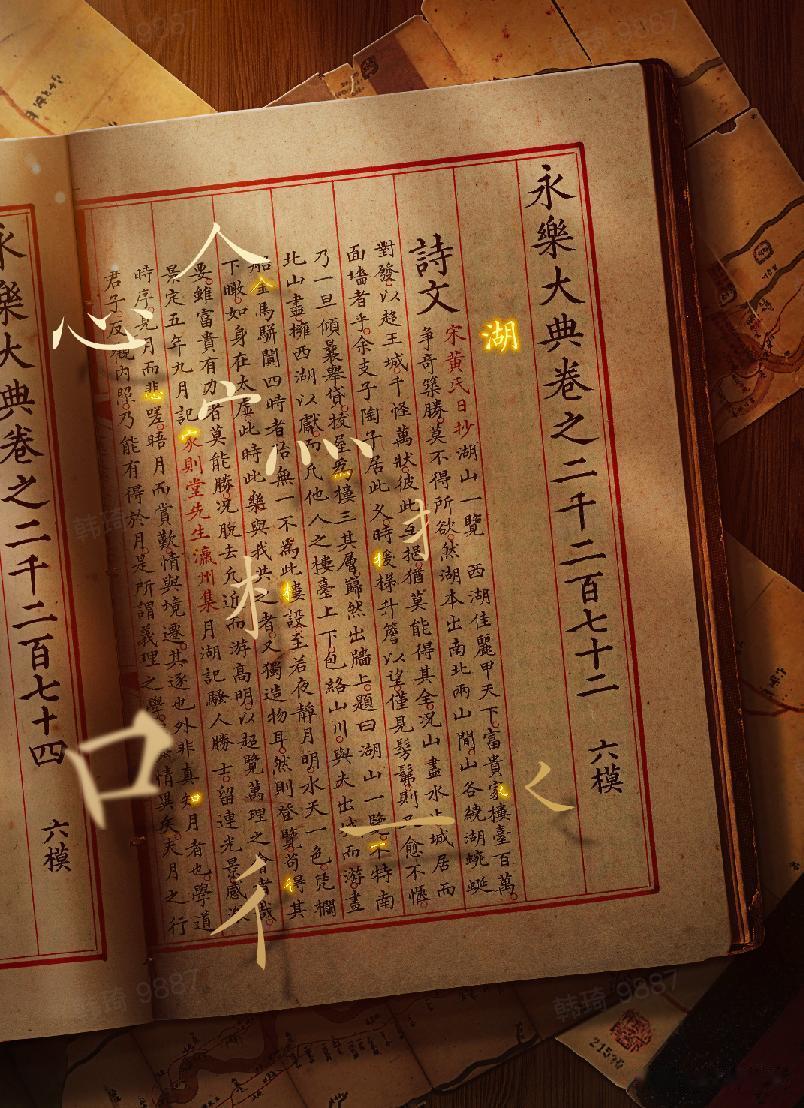 永樂大典卷之二千二百七十二 六模
湖
詩文
宋黃氏日抄湖山一覽 西湖佳麗甲天下富貴家樓臺百萬
爭奇築勝莫不得所欲然湖本出南北兩山閒山谷繞湖蜿蜒
對發以趍王城千怪萬狀彼此互挹猶莫能得其全況山盡水城居而
面墻者乎余支子陶子居此久時援梯升簷以望僅見髣髴則愈不愜
乃一旦傾囊舉貸拉屋爲樓三其層巋然出牆上題曰湖山一覽不特南
北山盡擁西湖以獻而凡他人之樓臺上下包絡山川與夫出城而游畫
船金馬駢闐四時者恰無一不爲此樓設至若夜靜月明水天一色凭欄
下瞰如身在太虛此時此樂與我共之者又獨造物耳然則登覽苟得其
要雖富貴有力者莫能勝況脫去凡近而游高明以超覽萬理之會者哉
景定五年九月記家則堂先生瀛州集月湖記騷人勝士留連光景感
時序見月而悲嗟晤月而賞歎情與境遷其逐也外非真知月者也學道
君子反觀內照乃能有得於月是所謂義理之學情異矣夫月之行
永樂大典卷之二千二百七十四 六模
人
心
宀
灬
扌
木
口
一
く
亻
21590
韩琦 9887
韩琦 9887
韩琦 9887
韩琦 9887
韩琦 9887